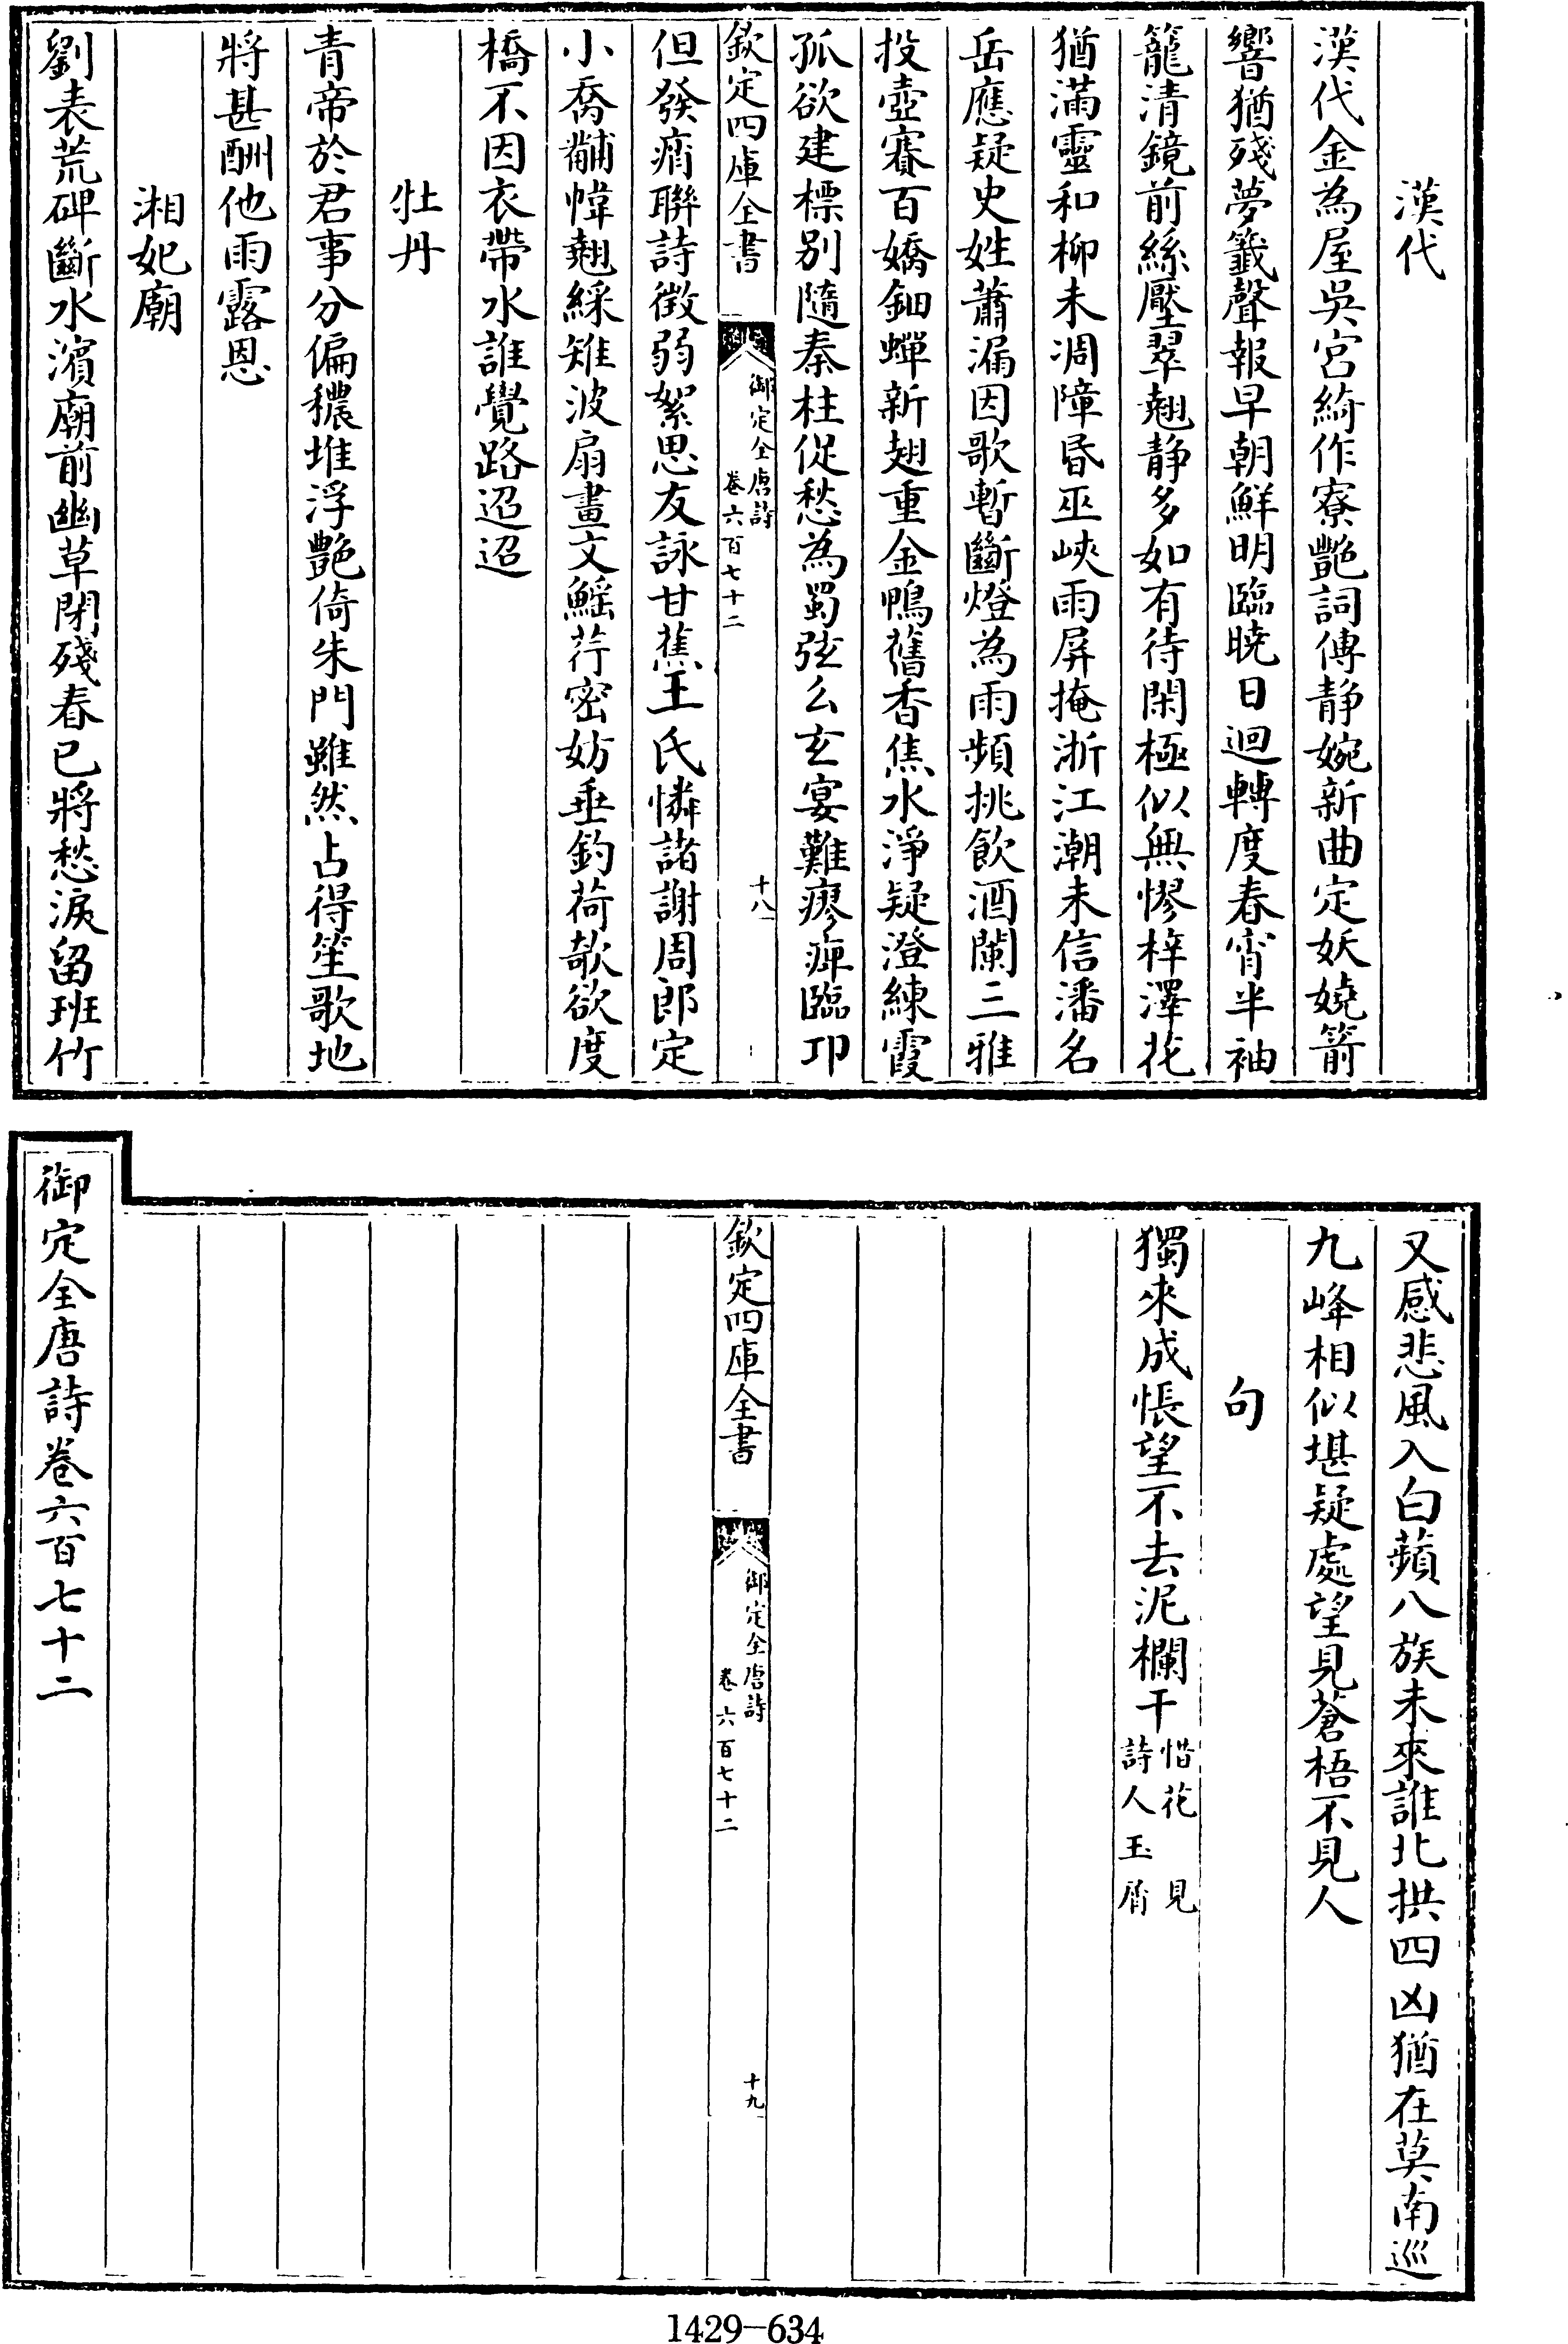 漢代
漢代金為屋吳宮綺作寮艷詞傳静婉新曲定妖嬈箭
響猶殘夢籤聲報早朝鮮明臨曉日迴轉度春宵半袖
籠清鏡前絲壓翠翹静多如有待閑極似無憀梓澤花
猶滿靈和柳未凋障昏巫峽雨屏掩浙江潮未信潘名
岳應疑史姓蕭漏因歌暫斷燈為雨頻挑飲酒闌三雅
投壺賽百嬌鈿蟬新翅重金鴨舊香焦水淨疑澄練霞
孤欲建標别隨秦柱促愁為蜀弦么玄宴難瘳痺臨邛
欽定四庫全書
御定全唐詩
卷六百七十二
十八
但發痟聯詩徴弱絮思友詠甘蕉王氏憐諸謝周郎定
小喬黼幃翹綵雉波扇畫文鰩荇密妨垂釣荷欹欲度
橋不因衣帶水誰覺路迢迢
牡丹
青帝於君事分偏穠堆浮艷倚朱門雖然占得笙歌地
將甚酬他雨露恩
湘妃廟
劉表荒碑斷水濱廟前幽草閉殘春已將愁淚留班竹
又感悲風入白蘋八族未來誰北拱四凶猶在莫南巡
九峰相似堪疑處望見蒼梧不見人
句
獨來成悵望不去泥欄干
惜花 見
詩人玉屑
欽定四庫全書
御定全唐詩
卷六百七十二
十九
御定全唐詩卷六百七十二
1429-634